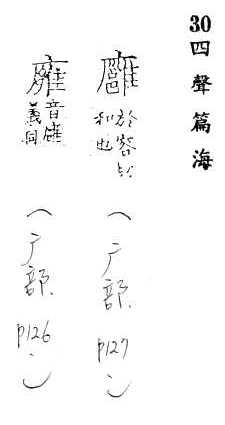 30四聲篇海
於容切
和也
(广部 p127)
義同
(广部 p126)